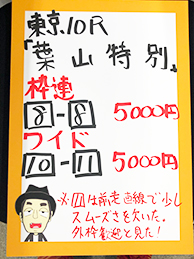 東京.10R
「葉山特別」
枠連
8-8 5000円
ワイド
10-11 5000円
※11は前走直線で少し
スムーズさを欠いた。
外枠歓迎と見た!